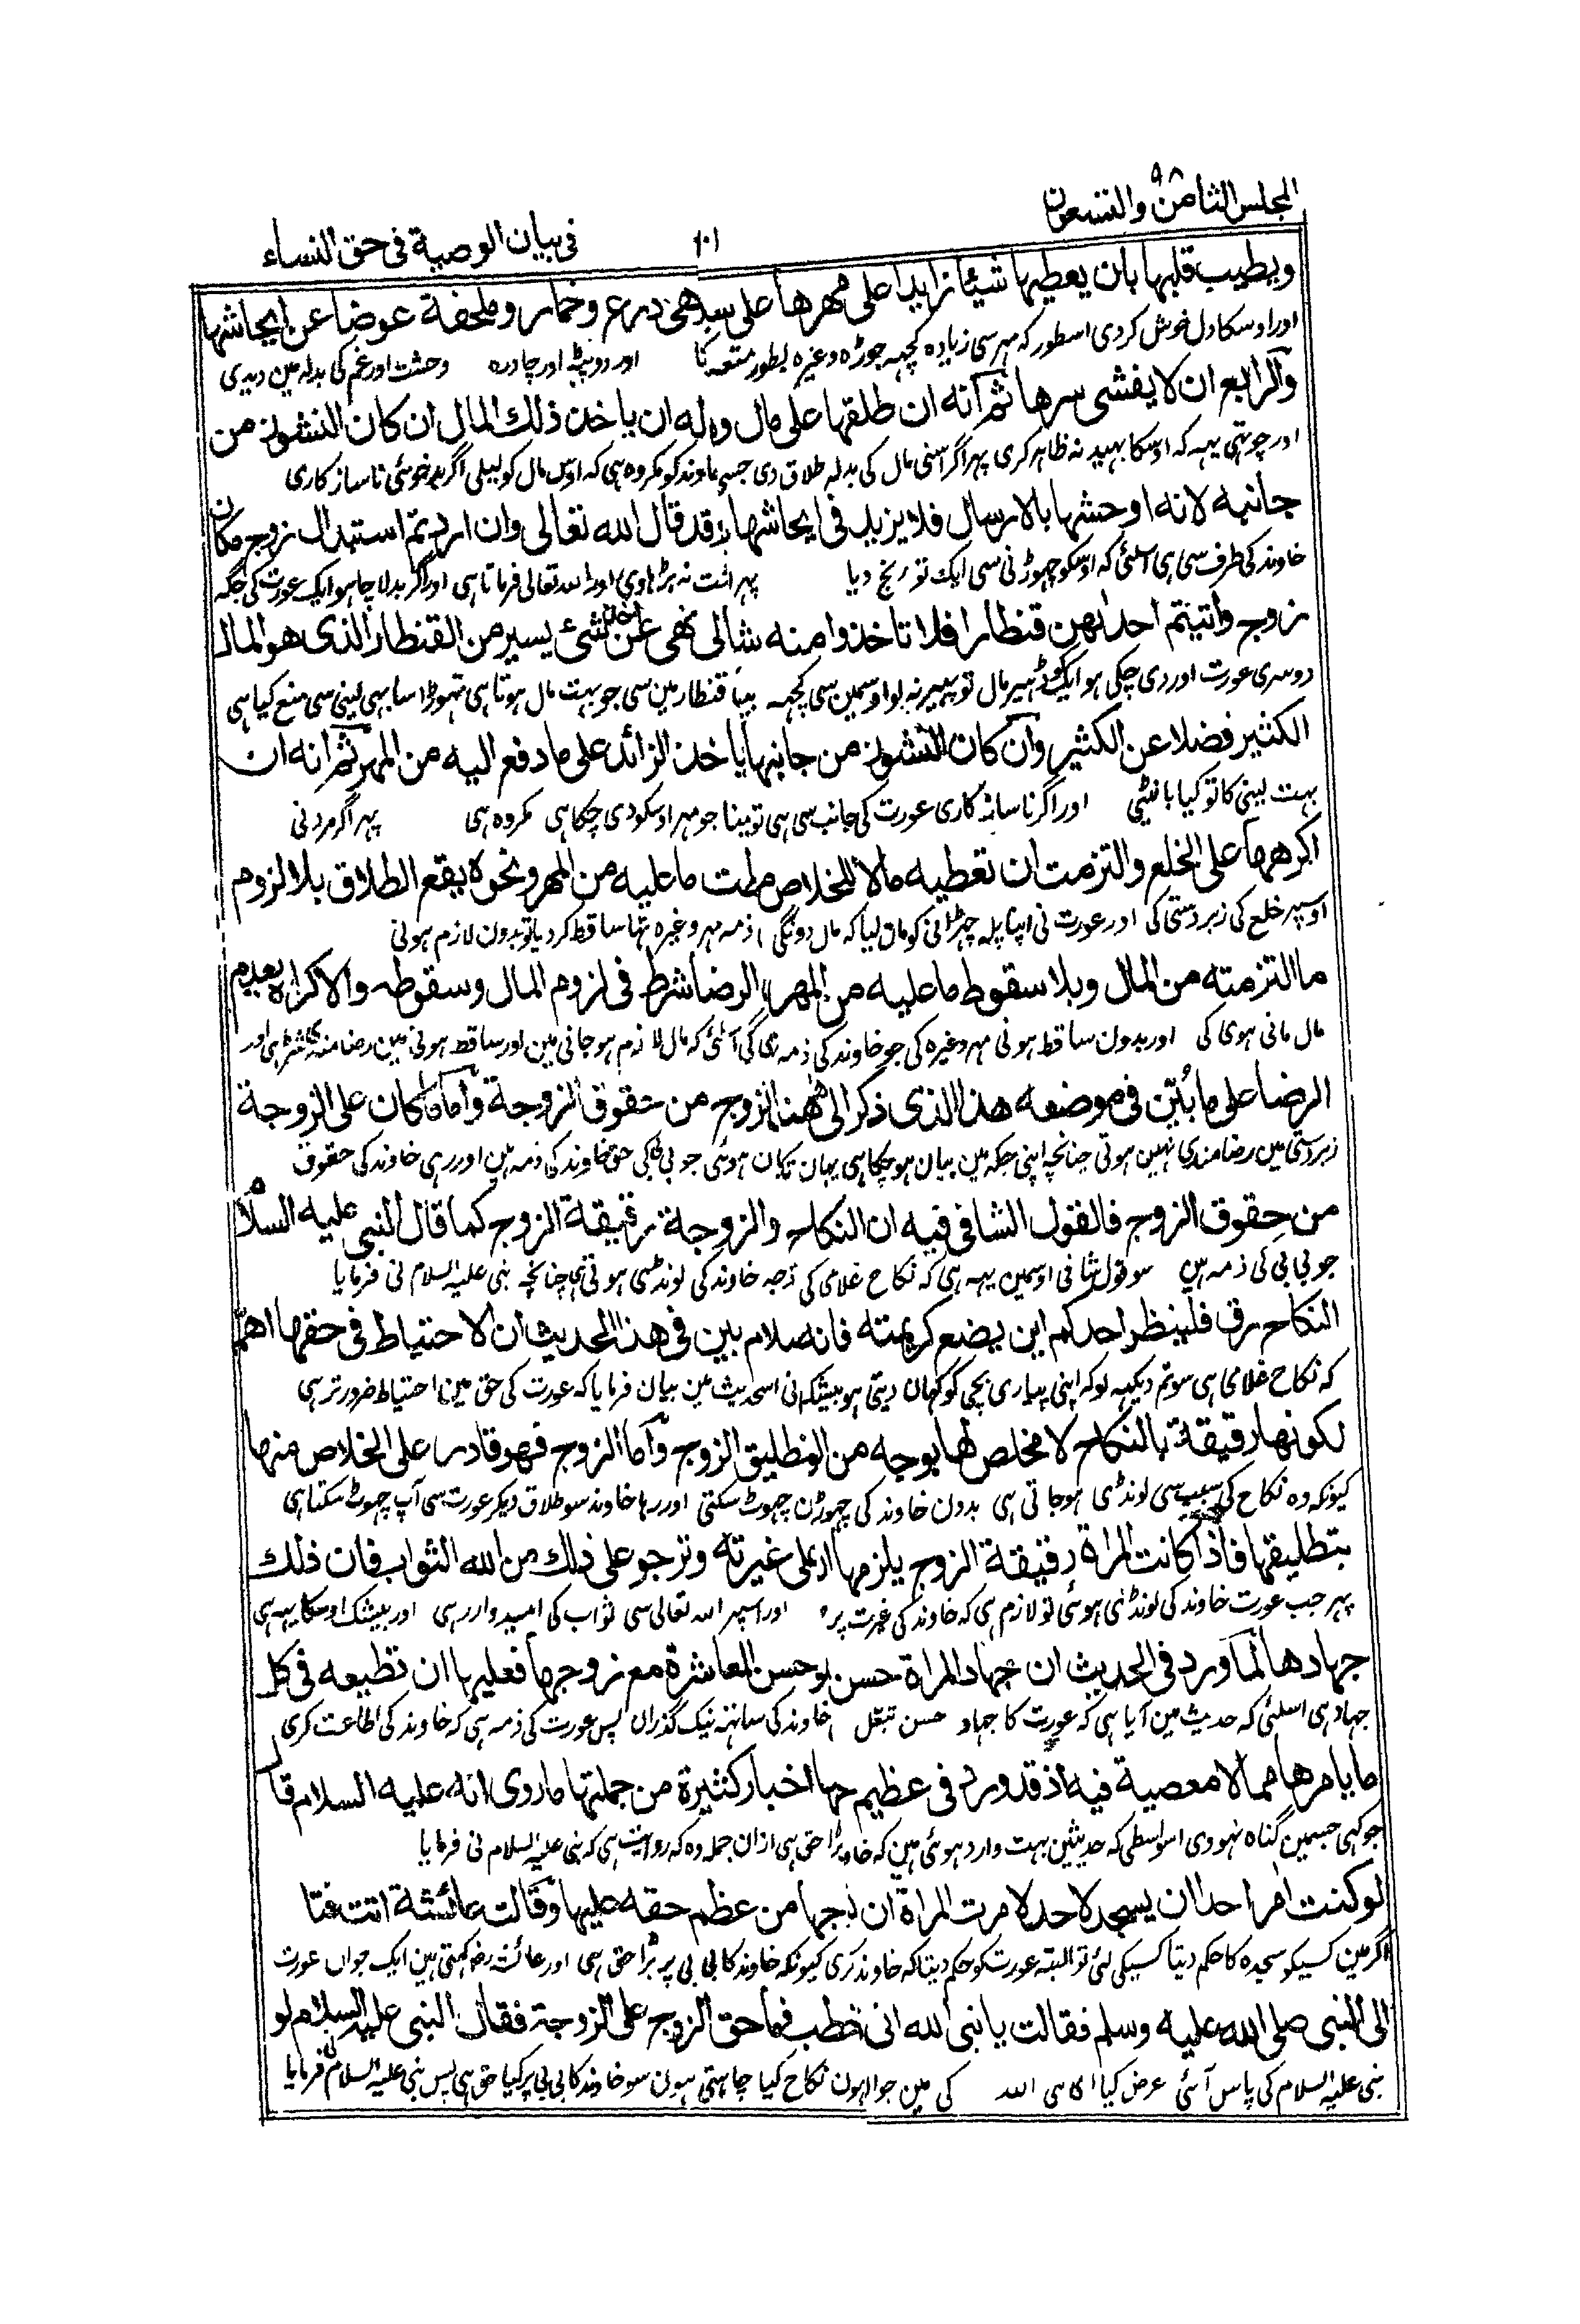 المجلس الثامن والتسعون ٩٨
١٠١
فی بیان الوصیة فی حق النساء
ویطیب قلبها بان یعطیها شیئا زایدا علی مهرها علی سبیل درع وخمار وملحفة عوضا عن ایحاشها
اور اوسکا دل خوش کردی اسطور کہ مہر سی زیادہ کچہہ جوڑہ وغیرہ بطور متعہ کا اور دوپٹہ اور چادرہ وحشت اور غم کی بدلہ مین دیدی
والرابع ان لا یفشی سرها ثم انه ان طلقها علی مال وله ان یاخذ ذلك المال ان کان النشوز من
اور چوتہی یہہ کہ اوسکا بہید نہ ظاہر کری پہر اگر اسنی مال کی بدلہ طلاق دی خاوند کو مکروہ ہی کہ اوس مال کو لیلی اگر بدخوئی ناسازکاری
جانبه لانه اوحشها بالارسال فلا یزید فی ایحاشها وقد قال الله تعالی وان اردتم استبدال زوج مکان
خاوند کی طرف سی ہی اسلئی کہ اوسکو چہوڑنی سی ایک تو رنج دیا پہر اشت نہ بڑہاوی اور اللہ تعالی فرماتا ہی اور اگر بدلا چاہو ایک عورت کی جگہ
زوج واتیتم احدیهن قنطارا فلا تاخذوا منه شیئا نهی عن اخذ شیئ یسیر من القنطار الذی هو المال
دوسری عورت اور دی چکی ہو ایکو ڈہیر مال تو پہیر نہ لو اوسمین سی کچہہ قنطار مین سی جو بہت مال ہوتا ہی تہوڑا سا بہی لینی سی منع کیا ہی
الکثیر فضلا عن الکثیر وان کان النشوز من جانبها یاخذ الزائد علی ما دفع الیه من المهر ثم انه ان
بہت لینی کا تو کیا اور اگر ناسازکاری عورت کی جانب سی ہی تو جو مہر اوسکو دی چکا ہی مکروہ ہی پہر اگر مرد نی
اکرهها علی الخلع والتزمت ان تعطیه مالا للخلاص ما علیه من المهر ونحوه یقع الطلاق بلا لزوم
اوسپر خلع کی زبردستی کی اور عورت نی اپنا پلہ چہڑانی کو مان لیا کہ مال دونگی ذمہ مہر وغیرہ تہا ساقط کر دیا تو بدون لازم ہونی
ما التزمته من المال وبلا سقوط ما علیه من المهر الرضا شرط فی لزوم المال وسقوطه والاکراه یعدم
مال مانی ہوی کی اور بدون ساقط ہونی مہر وغیرہ کی جو خاوند کی ذمہ کہ مال لازم ہو جانی مین اور ساقط ہونی مین رضامندی شرط ہی اور
الرضا علی ما بُیّن فی موضعه هذا الذی ذکر الی ههنا من حقوق الزوجة واما ما کان علی الزوجة
زبردستی مین رضامندی نہین ہوتی چنانچہ اپنی جگہ مین بیان ہو چکا ہی یہان تک بیان ہوئی جو بی بی کی حق خاوند کی ذمہ ہین اور رہی خاوند کی حقوق
من حقوق الزوج فالقول الشافی فیه ان النکاح والزوجة رقیقة الزوج کما قال النبی علیه السلام
جو بی بی کی ذمہ ہین سو قول شافی اوسمین یہہ ہی کہ نکاح غلامی کی زوجہ خاوند کی لونڈی ہوتی ہی چنانچہ نبی علیہ السلام نی فرمایا
النکاح رق فلینظر احدکم این یضع کریمته فانه صلام بین فی هذا الحدیث ان الاحتیاط فی حقها اهم
کہ نکاح غلامی ہی سو تم دیکہہ لو کہ اپنی پیاری بچی کو کہان دیتی ہو بیشک نی اسحدیث مین بیان فرمایا کہ عورت کی حق مین احتیاط ضرور تر ہی
لکونها رقیقة بالنکاح لا مخلص لها بوجه من الزوج واما الزوج فهو قادر علی الخلاص منها
کیونکہ وہ نکاح کی سبب سی لونڈی ہو جاتی ہی بدون خاوند کی چہوڑن چہوٹ سکتی اور رہا خاوند سو طلاق دیکر عورت سی آپ چہوٹ سکتا ہی
بتطلیقها فاذا کانت المراة رقیقة الزوج یلزمها علی غیرته وترجو علی ذلك من الله الثواب فان ذلك
پہر جب عورت خاوند کی لونڈی ہوئی تو لازم ہی کہ خاوند کی غیرت پر اور اسپر اللہ تعالی سی ثواب کی امیدوار رہی اور بیشک اوسکا یہہ ہی
جهادها لما ورد فی الحدیث ان جهاد المراة حسن وحسن المعاشرة مع زوجها فعلیها ان تطیعه فی کل
جہاد ہی اسلئی کہ حدیث مین آیا ہی کہ عورت کا جہاد حسن تبعل خاوند کی ساتہہ نیک گذران پس عورت کی ذمہ ہی کہ خاوند کی اطاعت کری
ما یامرها مما لا معصیة فیه اذ قد ورد فی عظیم اخبار کثیرة من جملتها ما روی انه علیه السلام قال
جو کہی جسمین گناہ نہووی اسواسطی کہ حدیثین بہت وارد ہوئی ہین کہ بڑا حق ہی ازان جملہ وہ کہ روایت ہی کہ نبی علیہ السلام نی فرمایا
لو کنت امر احدا ان یسجد لاحد لامرت المراة ان من عظم حقه علیها وقالت عائشة اتت فتاة
اگر مین کسیکو سجدہ کا حکم دیتا کسیکی لئی تو البتہ عورت کو حکم دیتا کہ خاوند کری کیونکہ خاوند کا بی بی پر بڑا حق ہی اور عائشہ رض کہتی ہین ایک جوان عورت
الی النبی صلی الله علیه وسلم فقالت یا نبی الله انی اخطب فما حق الزوج علی الزوجة فقال النبی علیه السلام لو
نبی علیہ السلام کی پاس آئی عرض کیا اللہ کی مین جوان ہون نکاح کیا چاہتی ہون سو خاوند کا بی بی پر کیا حق ہی پس نبی علیہ السلام نی فرمایا